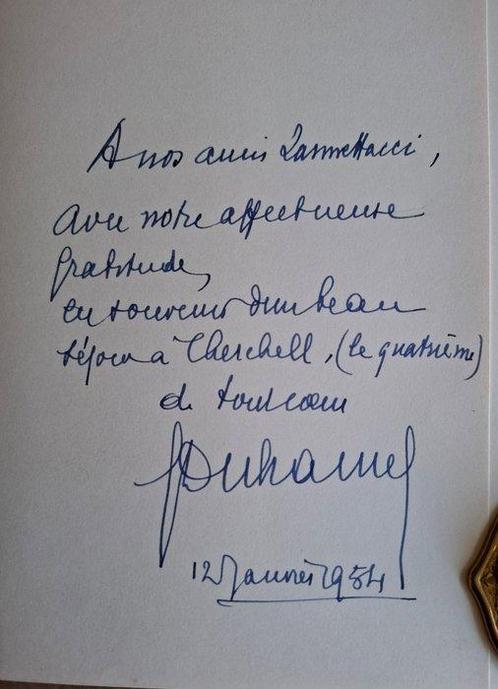 A nos amis Zannettacci,
Avec notre affectueuse
gratitude,
en souvenir d'un beau
séjour à Cherchell, (le quatrième)
de tout cœur
GDuhamel
12 Janvier 1954